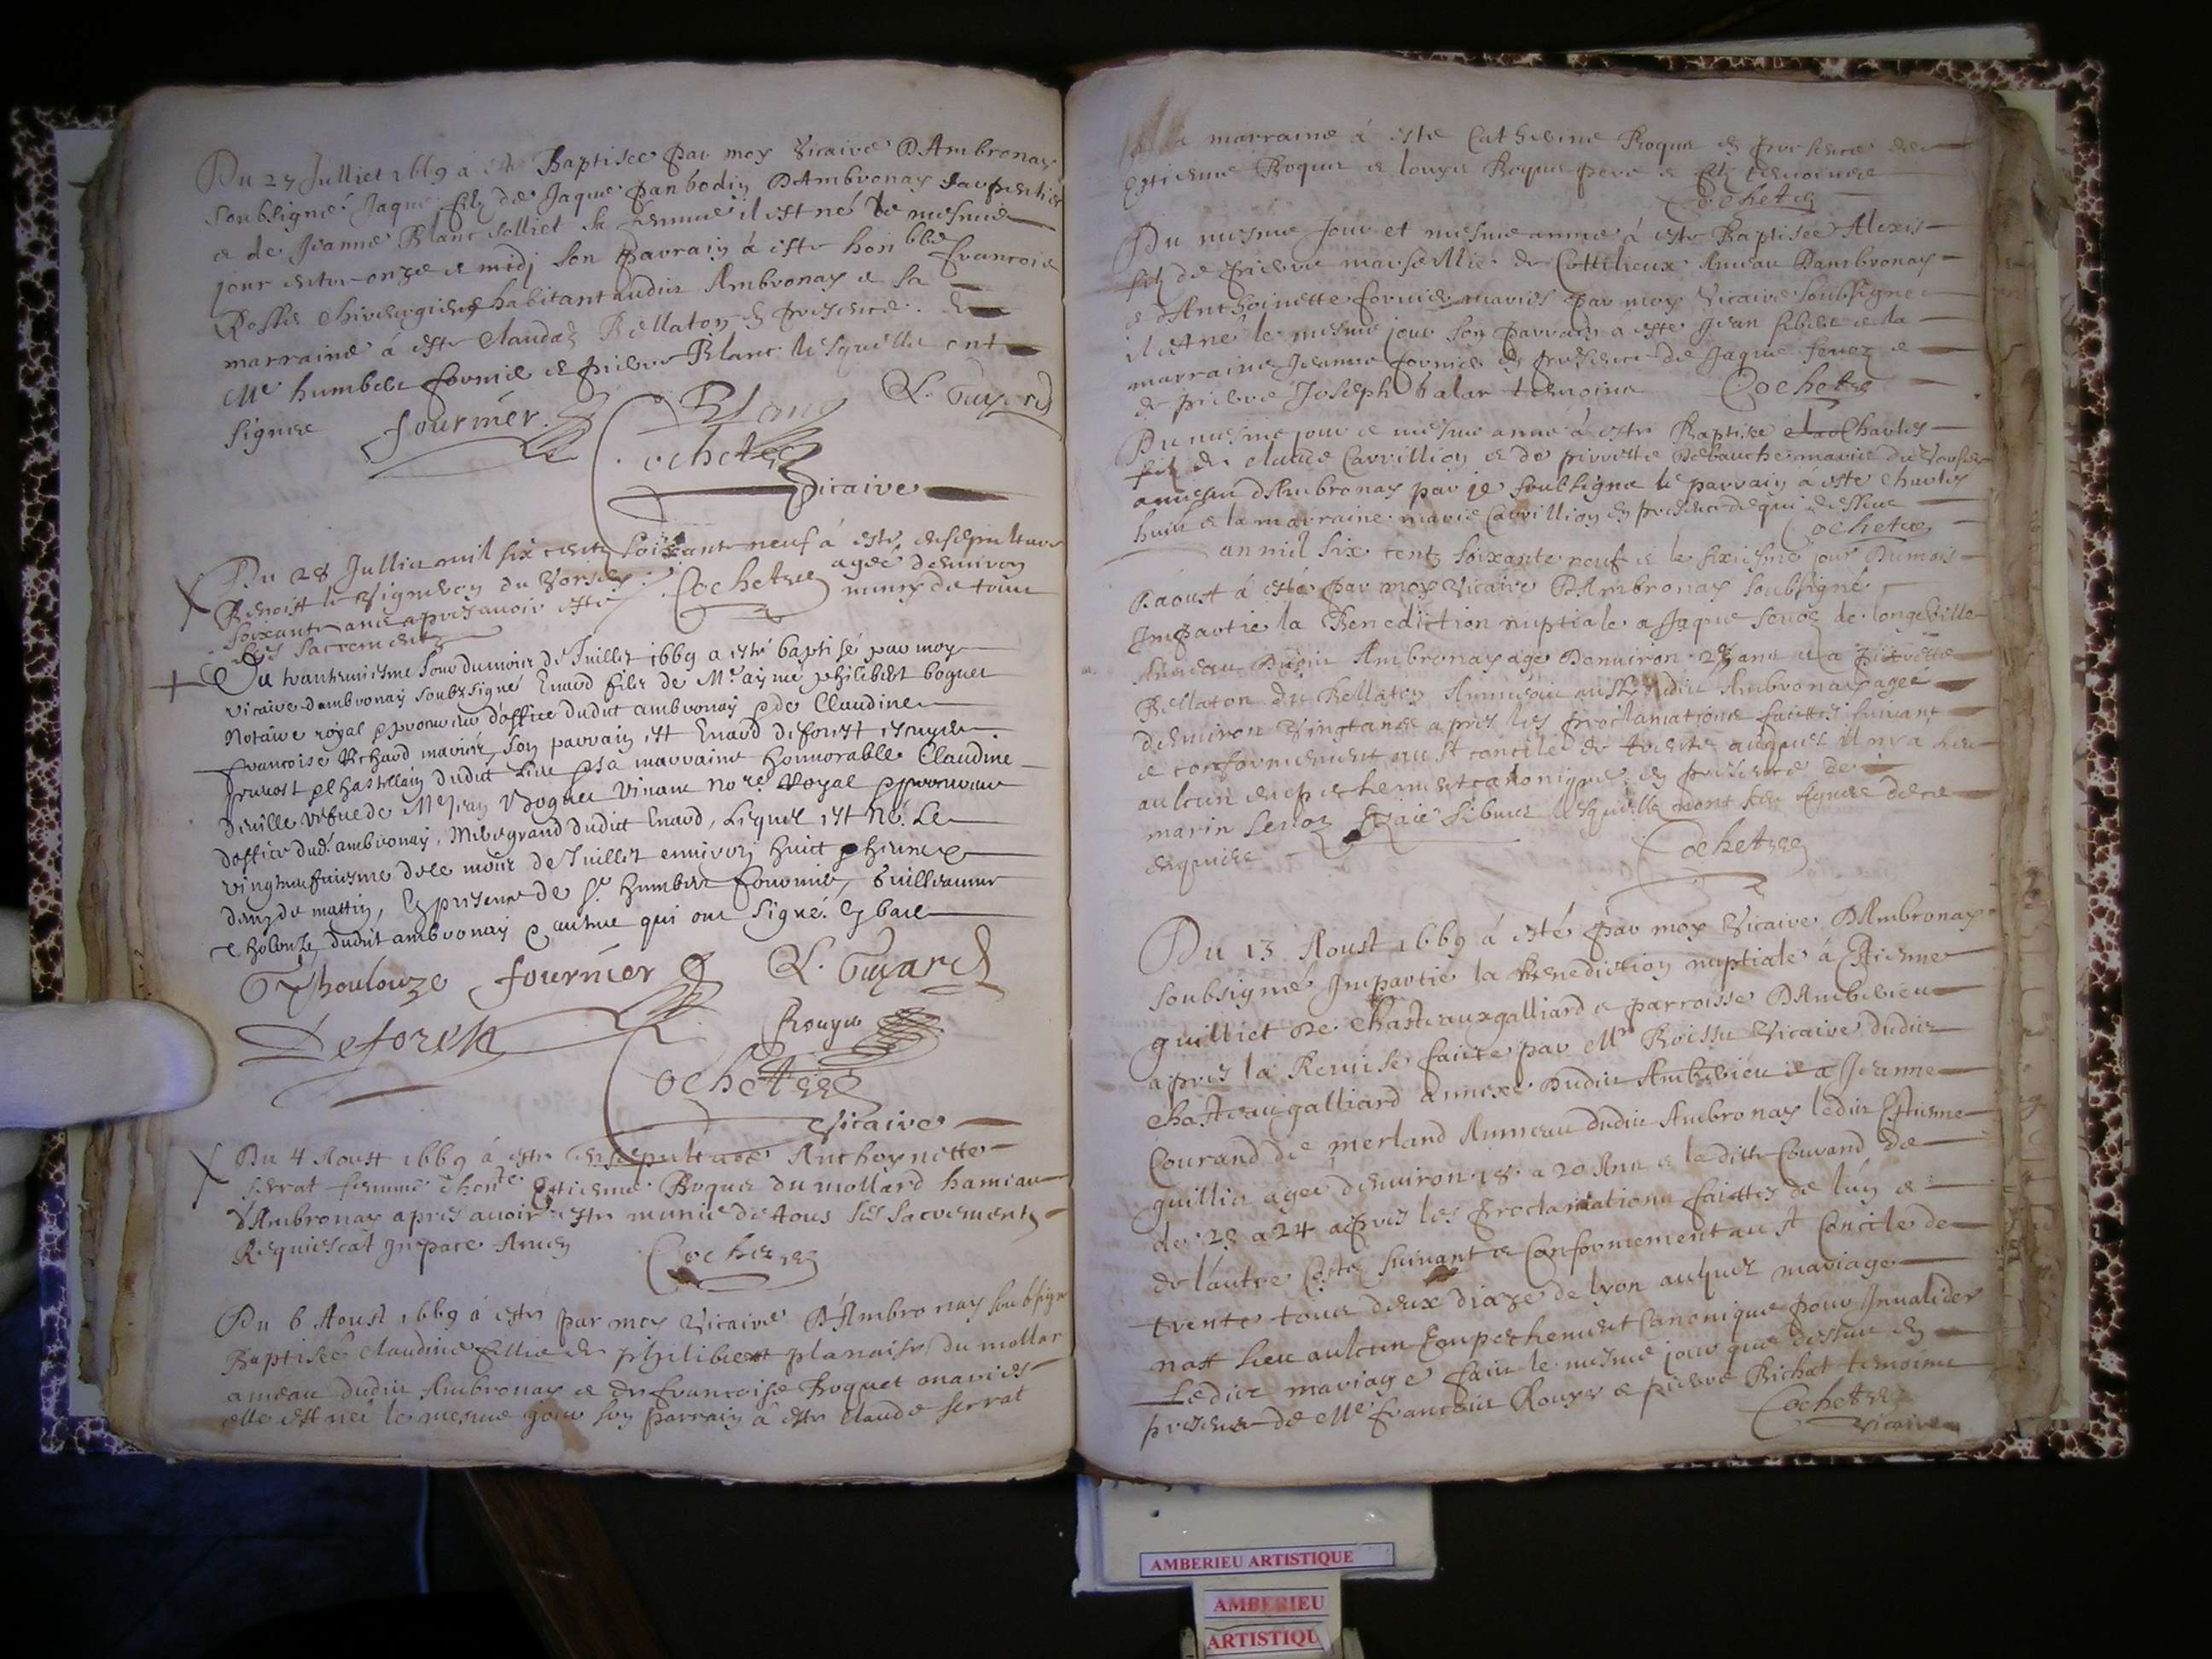 Du 27 Julliet 1669 a esté Baptisee par moy Vicaire D'Ambronay
soubsigné Jaque filz de Jaque Panbodin D'Ambronay
e de Jeanne Blanc solliet sa femme il est né le mesme
jour entre onze e midj son parrain à esté hon ble francois
chirurgien habitant audit Ambronay e sa
marraine à esté Claudaz Bellaton en presence
Me humbert fornier et pierre Blanc lesquelles ont
signer
fournier Blanc L. Guyard
Cochet
Vicaire
Du 28 Jullier mil six centz soixante neuf à esté ensepulture
Benoist le vigneron du Vorsey agée denviron
soixante ans apres avoir esté Cochet muny de tous
ses sacrementz
Du trantuniesme Jour du mois de Juillet 1669 a esté baptisé par moy
vicaire dambronay soubzsigné Enard filz de Me aymé philibert boguet
Notaire royal e procureur d'office dudict ambronay e de Claudine
francoise Richard mariés, son parrain est Enard deforest escuyer
prevost e Chastellain dudict lieu e sa marraine honnorable Claudine
deville vefue de Me Jean boguet vivant nore Royal e procureur
doffice dud. ambronay, Mere grand dudict Enard, Lequel est né Le
vingtneufuiesme de ce mois de Juillet environ huict heures
du matin, En presence de Sr humbert fournier, Guilleaume
Tholouze dudict ambronay e autre qui ont signé
Thoulouze fournier L. Guyard
Deforest Rouyer
Cochet
Vicaire
Du 4 Aoust 1669 à esté ensepulturee Anthoynette
serrat femme d'honte Estienne Boquet du mollard hameau
d'Ambronay apres avoir esté munie de tous ses sacrementz
Requiescat In pace Amen Cochet
Du 6 Aoust 1669 à esté par moy Vicaire D'Ambronay soubsigne
Baptisée Claudine fillie de philibert planaise du mollar
ameau dudit Ambronay e de francoise Boquet mariés
elle est neé le mesme jour son parrain à esté Claude serrat
la marraine à este Catherine Boquet en presence de
Estienne Boquet e louys Boquet pere e filz temoins
Cochet
Du mesme Jour et mesme annee à esté Baptisee Alexis
filz de pierre marseillie de Cottilieux Ameau Dambronay
e d'Anthoinette fornier mariés par moy Vicaire soubsigne
il est né le mesme jour son parrain à esté Jean sibert e la
marraine Jeanne fornier en presence de Jaque senoz e
de pierre Joseph balar temoins Cochet
Du mesme jour e mesme anné à esté Baptise Charles
filz de claude Carrillion e de pierrette Debauche mariés du Vorsey
ameau d'Ambronay par je soubsigne le parrain à esté Charles
huin e la marraine marie Carrillion en presence de qui dessus
Cochet
an mil six centz soixante neuf e le sixiesme jour Dumois
Daoust à esté par moy Vicaire D'Ambronay soubsigné
Impartie la Benediction nuptiale a Jaque senoz de longeville
Ameau Dudit Ambronay agé Denviron 25 ans e a pierrette
Bellaton de Bellaton Ammeau aussi dudit Ambronay agee
denviron Vingt ans apres les proclamations faittes suivant
e conformement au St concile de trente auquel il ny a heu
aulcun enpechement canonique en presence de
marin senoz sibuet lesquelles nont sceu signer de ce
enquise
Cochet
Du 13 Aoust 1669 à esté par moy Vicaire D'Ambronay
soubsigné Impartie la Benediction nuptiale à Estienne
guilliet De Chasteauxgalliard e parroisse D'Amberieu
apres la Remise faicte par Mr Boissu Vicaire dudit
Chasteaugalliard annexe Dudit Amberieu e a Jeanne
Courand de merland Ammeau dudit Ambronay ledit Estienne
guilliet agee denviron 18 a 20 Ans e laditte Courand de
de 23 a 24 apres les proclamations faittes de lun e
de lautre costé suivant e Conformement au St Concile de
trente tous deux dioze de lyon auquel mariage
nast heu aulcun Enpechement Canonique pour Invalider
Ledict mariage fait le mesme jour que dessus en
presence de Me francois Rouyer e pierre Richat temoins
Cochet
Vicaire
AMBERIEU ARTISTIQUE
AMBERIEU
ARTISTIQU